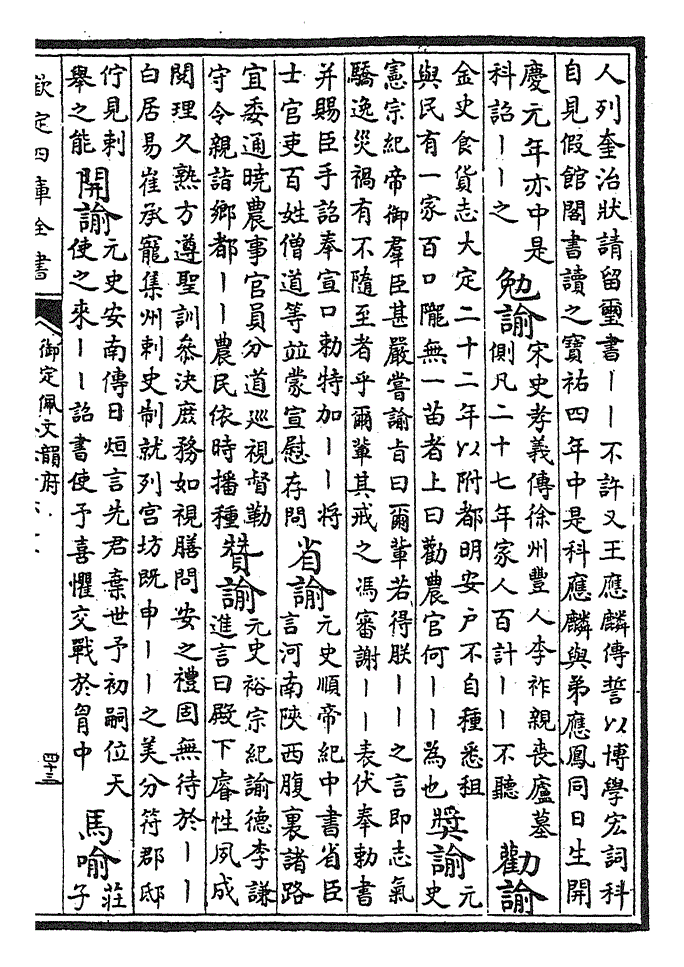 人列奎治狀請留璽書丨丨不許又王應麟傳誓以博學宏詞科
自見假館閣書讀之寶祐四年中是科應麟與弟應鳳同日生開
慶元年亦中是
科詔丨丨之
勉諭
宋史孝義傳徐州豐人李祚親喪廬墓
側凡二十七年家人百計丨丨不聽
勸諭
金史食貨志大定二十二年以附都明安戶不自種悉租
與民有一家百口隴無一苗者上曰勸農官何丨丨為也
奬諭
元
史
憲宗紀帝御羣臣甚嚴嘗諭㫖曰爾輩若得朕丨丨之言即志氣
驕逸災禍有不隨至者乎爾輩其戒之馮審謝丨丨表伏奉勅書
并賜臣手詔奉宣口勅特加丨丨將
士官吏百姓僧道等竝蒙宣慰存問
省諭
元史順帝紀中書省臣
言河南陝西腹裏諸路
宜委通曉農事官員分道巡視督勤
守令親詣鄉都丨丨農民依時播種
賛諭
元史裕宗紀諭德李謙
進言曰殿下睿性夙成
閱理久熟方遵聖訓叅決庶務如視膳問安之禮固無待於丨丨
白居易崔承寵集州刺史制就列宫坊既申丨丨之美分符郡邸
佇見刺
舉之能
開諭
元史安南傳日烜言先君棄世予初嗣位天
使之來丨丨詔書使予喜懼交戰於胷中
馬喻
莊
子
欽定四庫全書
御定佩文韻府
四十三